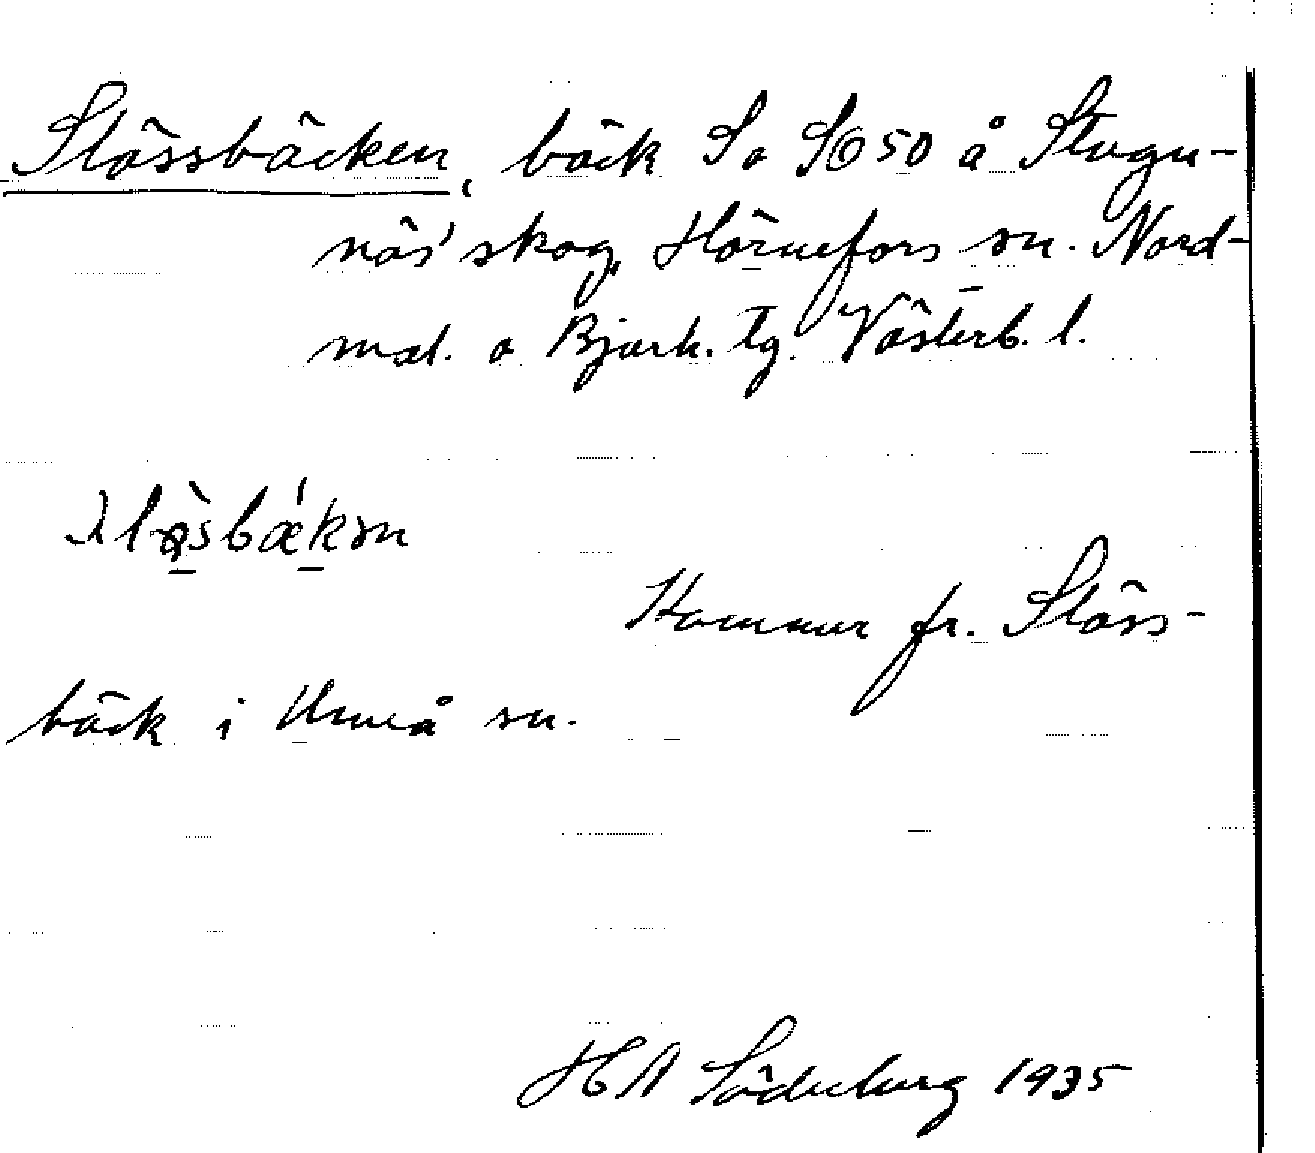 Slössbäcken, bäck S o SO 50 å Stugu-
näs' skog, Hörnefors sn. Nord-
mal. o Bjurh. tg. Västerb. l.
Kommer fr. Slöss-
bäck i Umeå sn.
H A Söderberg 1935